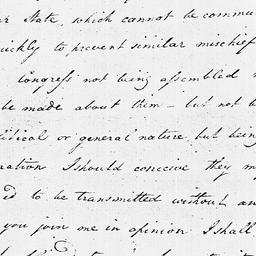 State, which cannot be commu
uickly to prevent similar mischief
Congress not being assembled
be made about them – but not b
litical or general nature, but bein
ration I should conceive they m
ed to be transmitted without an
you join me in opinion I shall